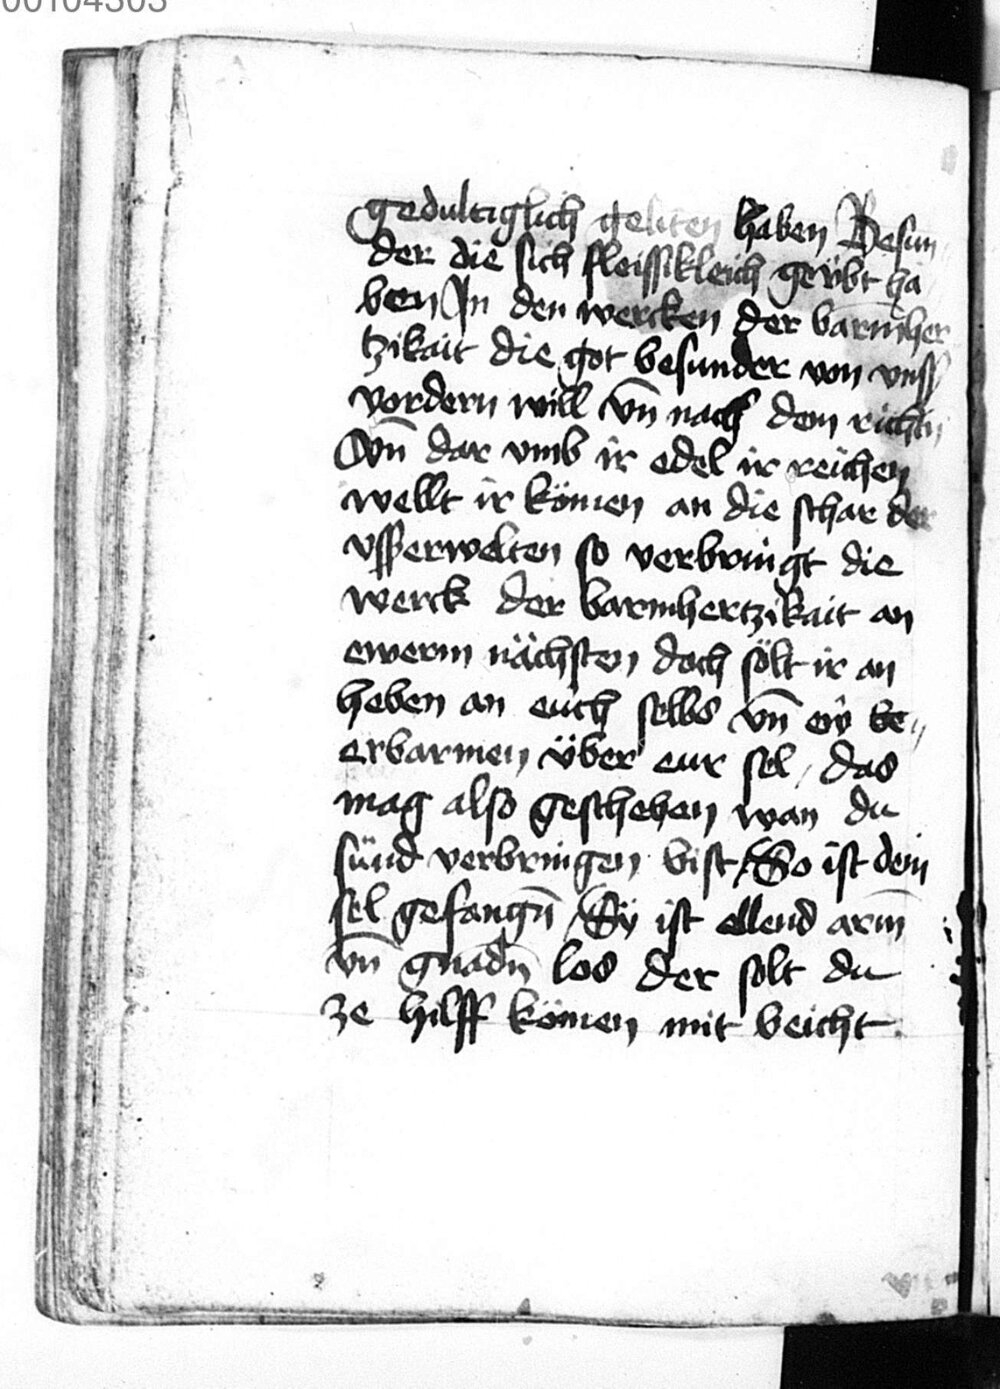 00104303
gedultiglich geliten haben Besun
der die sich fleissikleich geübt ha
ben In den wercken der barm̄her
tzikait die got besunder von vnss
vordern will vn̄ nach dem richtn̄
Vn̄ dar vmb ir edel ir reichen
wellt ir kömen an die schar der
vsserwelten so verbringt die
werck der barmhertzikait an
ewerm nächsten doch sölt ir an
heben an eüch selbs vn̄ eẅ be„
erbarmen über eur sel, das
mag also geschehen wan du
sünd verbringen bist, So ist dein
sel gefangn̄, Sÿ ist ellend arm̄
vn̄ gnadn̄ los der solt du
ze hilff kömen mit beicht.